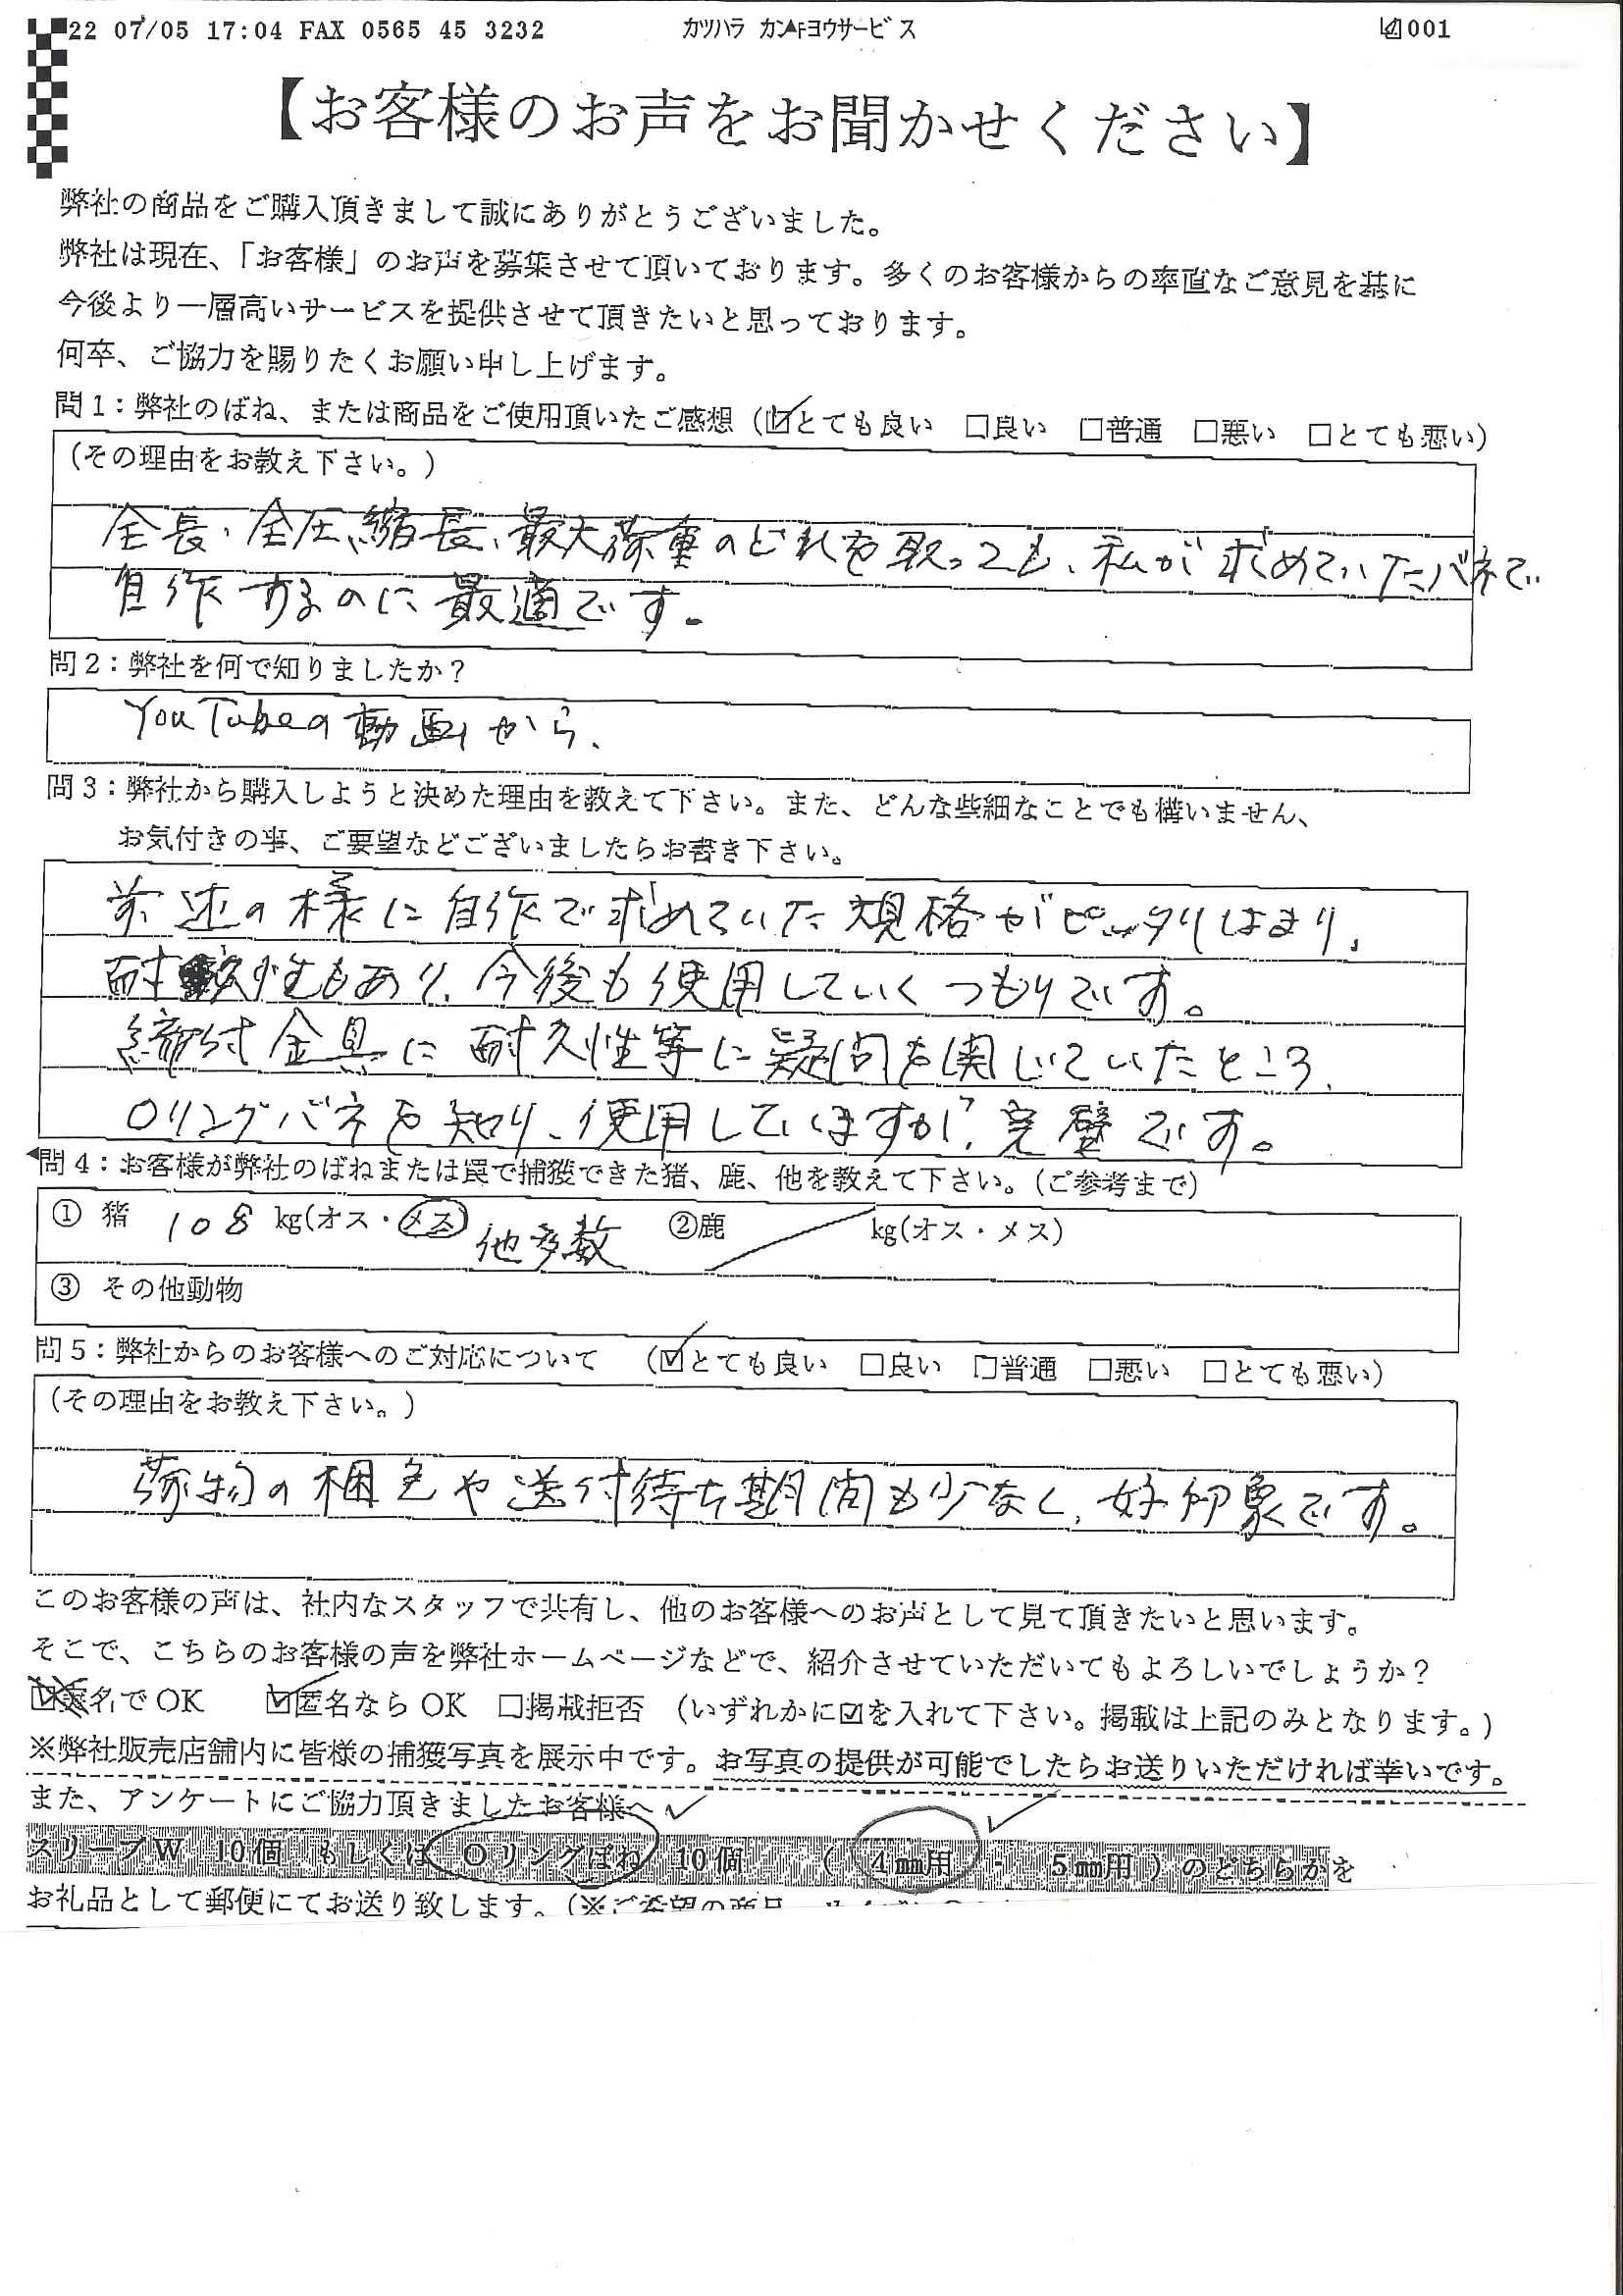 22 07/05 17:04 FAX 0565 45 3232 カツハラ カンキヨウサービス 001
【お客様のお声をお聞かせください】
弊社の商品をご購入頂きまして誠にありがとうございました。
弊社は現在、「お客様」のお声を募集させて頂いております。多くのお客様からの率直なご意見を基に
今後より一層高いサービスを提供させて頂きたいと思っております。
何卒、ご協力を賜りたくお願い申し上げます。
問1：弊社のばね、または商品をご使用頂いたご感想（☑とても良い □良い □普通 □悪い □とても悪い）
（その理由をお教え下さい。）
全長、全圧縮長、最大荷重のどれを取っても、私が求めていたバネで
自作するのに最適です。
問2：弊社を何で知りましたか？
YouTubeの動画から、
問3：弊社から購入しようと決めた理由を教えて下さい。また、どんな些細なことでも構いません、
お気付きの事、ご要望などございましたらお書き下さい。
前述の様に自作で求めていた規格がピッタリはまり、
耐久性もあり、今後も使用していくつもりです。
締付金具に耐久性等に疑問を関じていたところ、
Oリングバネを知り、使用していますが、完璧です。
問4：お客様が弊社のばねまたは罠で捕獲できた猪、鹿、他を教えて下さい。（ご参考まで）
① 猪 108 kg(オス・メス) 他多数 ②鹿 kg(オス・メス)
③ その他動物
問5：弊社からのお客様へのご対応について （☑とても良い □良い □普通 □悪い □とても悪い）
（その理由をお教え下さい。）
荷物の梱包や送付待ち期間も少なく、好印象です。
このお客様の声は、社内なスタッフで共有し、他のお客様へのお声として見て頂きたいと思います。
そこで、こちらのお客様の声を弊社ホームページなどで、紹介させていただいてもよろしいでしょうか？
☑実名でOK ☑匿名ならOK □掲載拒否 （いずれかに☑を入れて下さい。掲載は上記のみとなります。）
※弊社販売店舗内に皆様の捕獲写真を展示中です。お写真の提供が可能でしたらお送りいただければ幸いです。
また、アンケートにご協力頂きましたお客様へ
スリーブW 10個 もしくは Oリングばね 10個 （ 4㎜用 ・ 5㎜用 ）のどちらかを
お礼品として郵便にてお送り致します。（※ご希望の商品